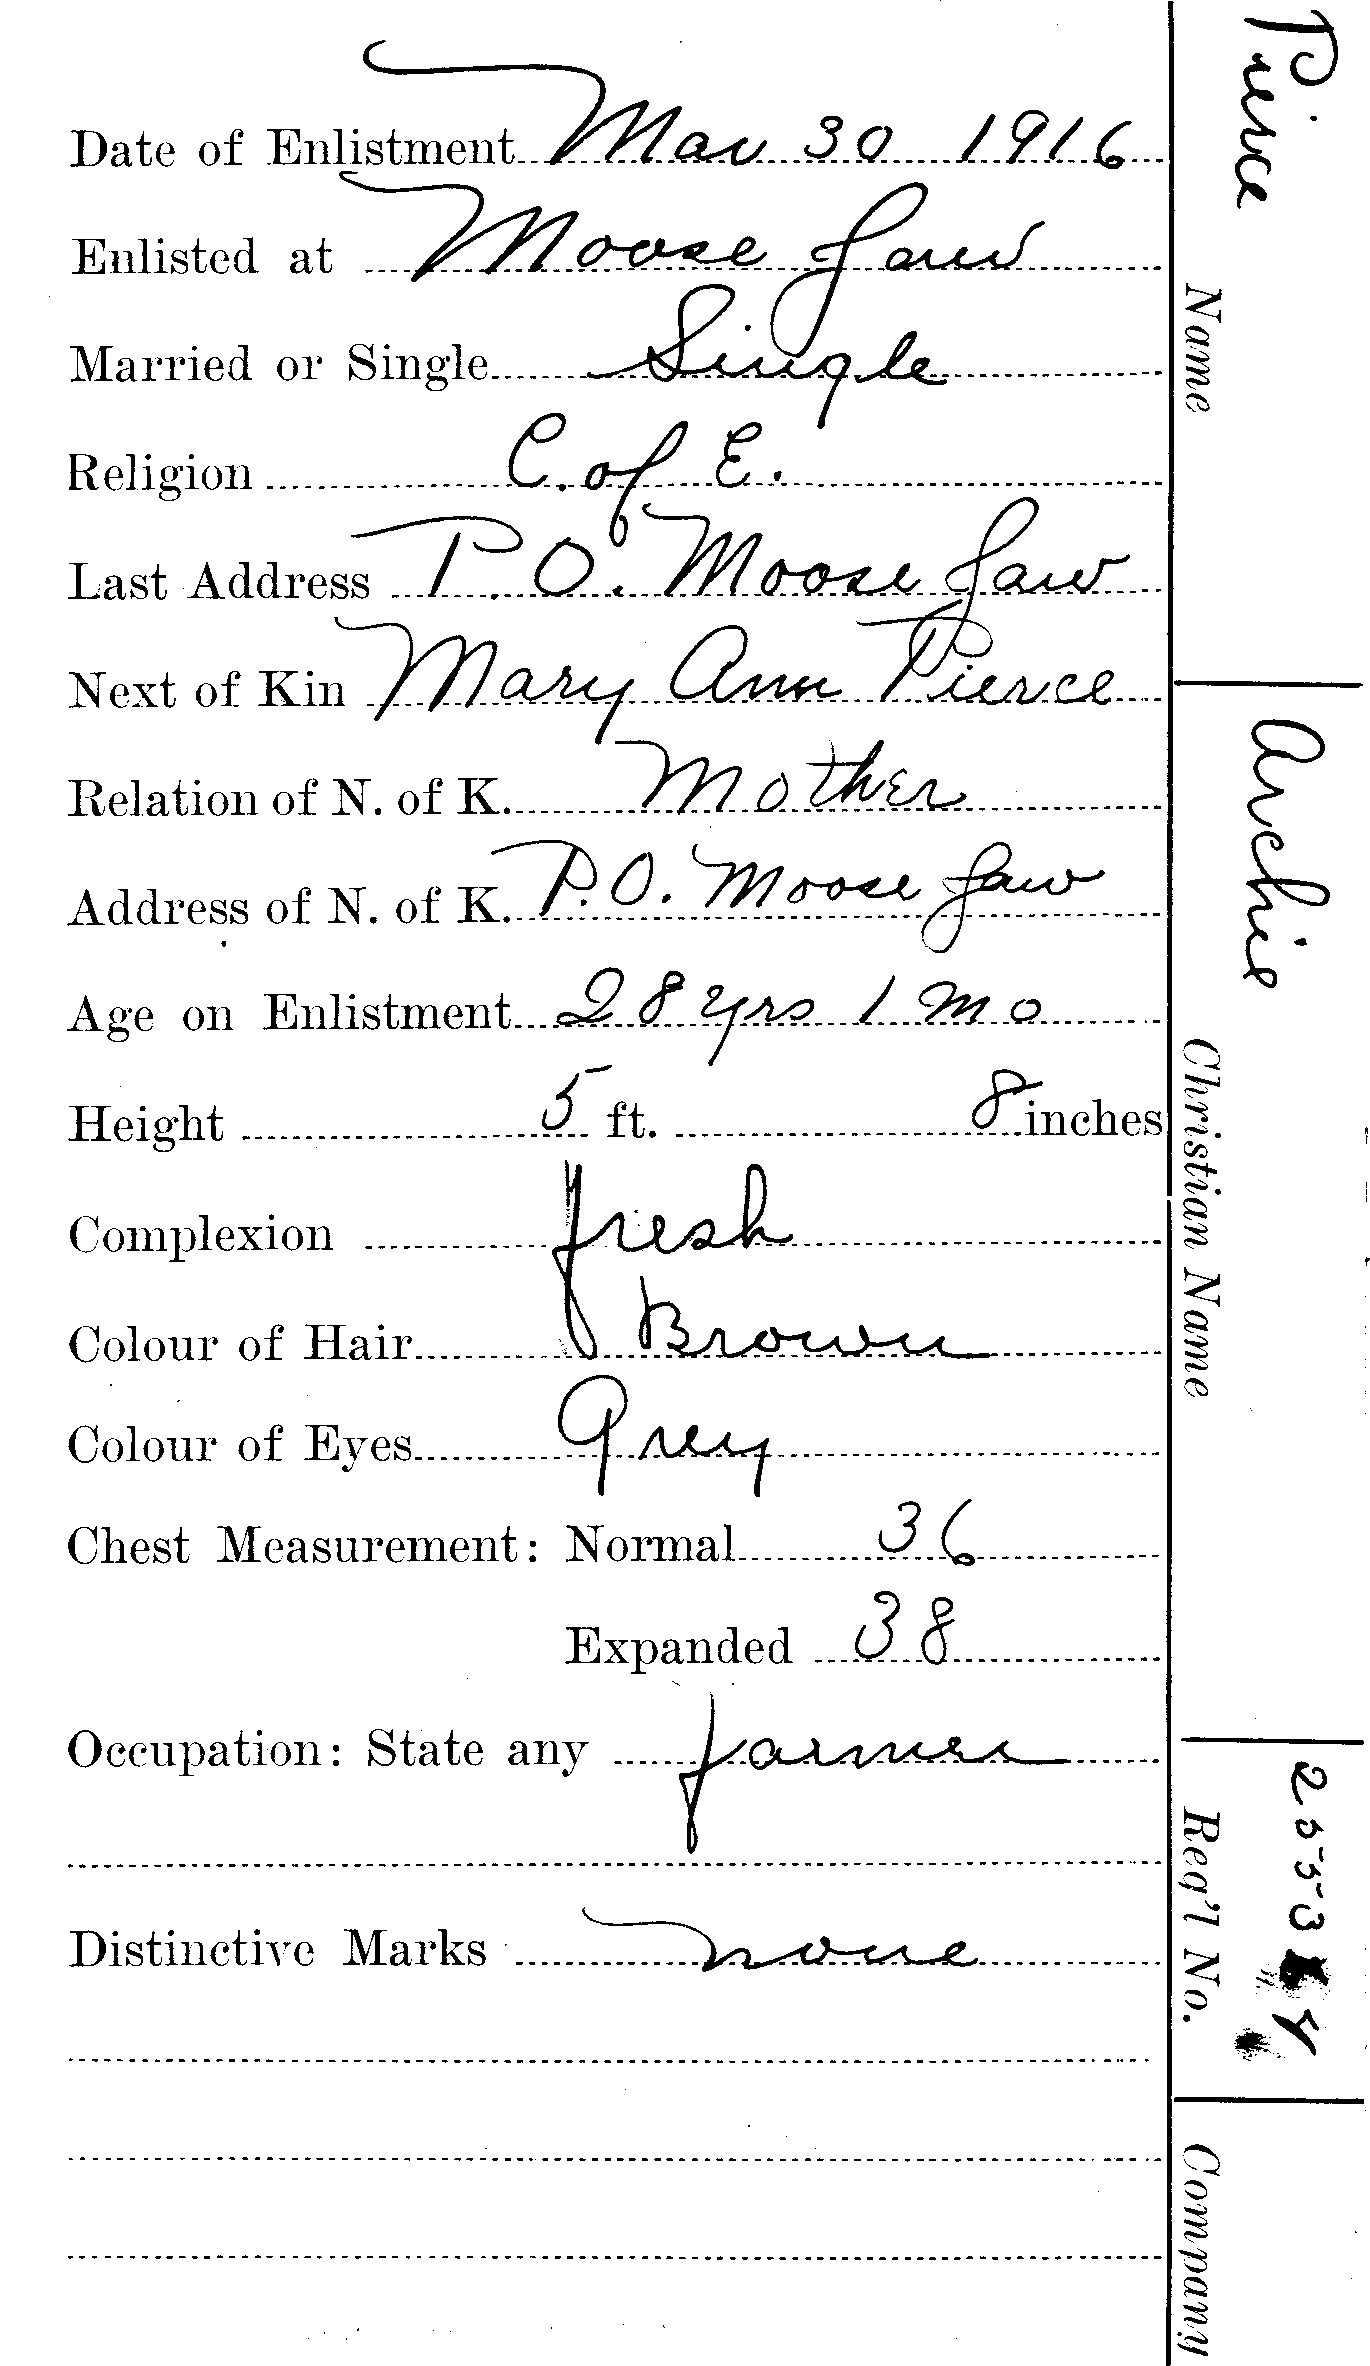 Date of Enlistment Mar 30 1916
Enlisted at Moose Jaw
Married or Single Single
Religion C. of E.
Last Address P.O. Moose Jaw
Next of Kin Mary Ann Pierce
Relation of N. of K. Mother
Address of N. of K. P.O. Moose Jaw
Age on Enlistment 28 yrs 1 mo
Height 5 ft. 8 inches
Complexion fresh
Colour of Hair Brown
Colour of Eyes Grey
Chest Measurement: Normal 36
Expanded 38
Occupation: State any farmer
Distinctive Marks none
Pierce
Name
Archie
Christian Name
Reg'l No.
Company